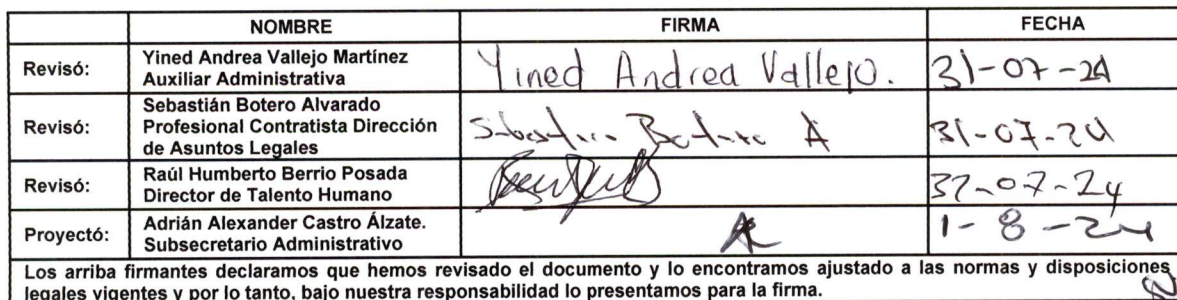 NOMBRE FIRMA FECHA
Revisó: Yined Andrea Vallejo Martínez
Auxiliar Administrativa
Yined Andrea Vallejo. 31-07-24
Revisó: Sebastián Botero Alvarado
Profesional Contratista Dirección
de Asuntos Legales
Sebastián Botero A 31-07-24
Revisó: Raúl Humberto Berrio Posada
Director de Talento Humano
-07-24
Proyectó: Adrián Alexander Castro Álzate.
Subsecretario Administrativo
1-8-24
Los arriba firmantes declaramos que hemos revisado el documento y lo encontramos ajustado a las normas y disposiciones
legales vigentes y por lo tanto, bajo nuestra responsabilidad lo presentamos para la firma.